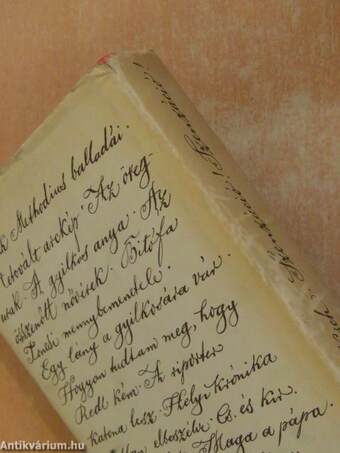 Methodius balladái.
tetovált arckép. Az öreg-
urak. A gyilkos anya. Az
nővérek. Bitófa
Tonka mennybemenetele.
Egy lány a gyilkosára vár.
Hogyan tudtam meg, hogy
Redl kém. A riporter
katona lesz. Helyi krónika
elbeszélve. Cs. és kir.
Maga a pápa.
Szenzáció!
Antikvárium.hu